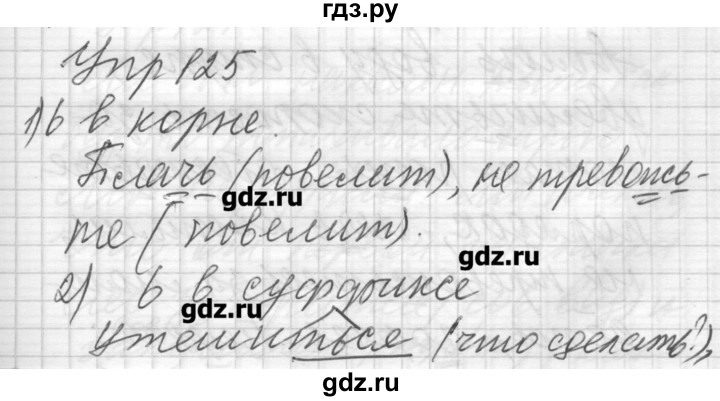 гдз.ру
Упр 125
1) ь в корне.
Плачь (повелит), не тревожь-
gdz.ru
те (повелит).
gdz.ru
2) ь в суффиксе
gdz.ru
утешиться (что сделать?),
gdz.ru